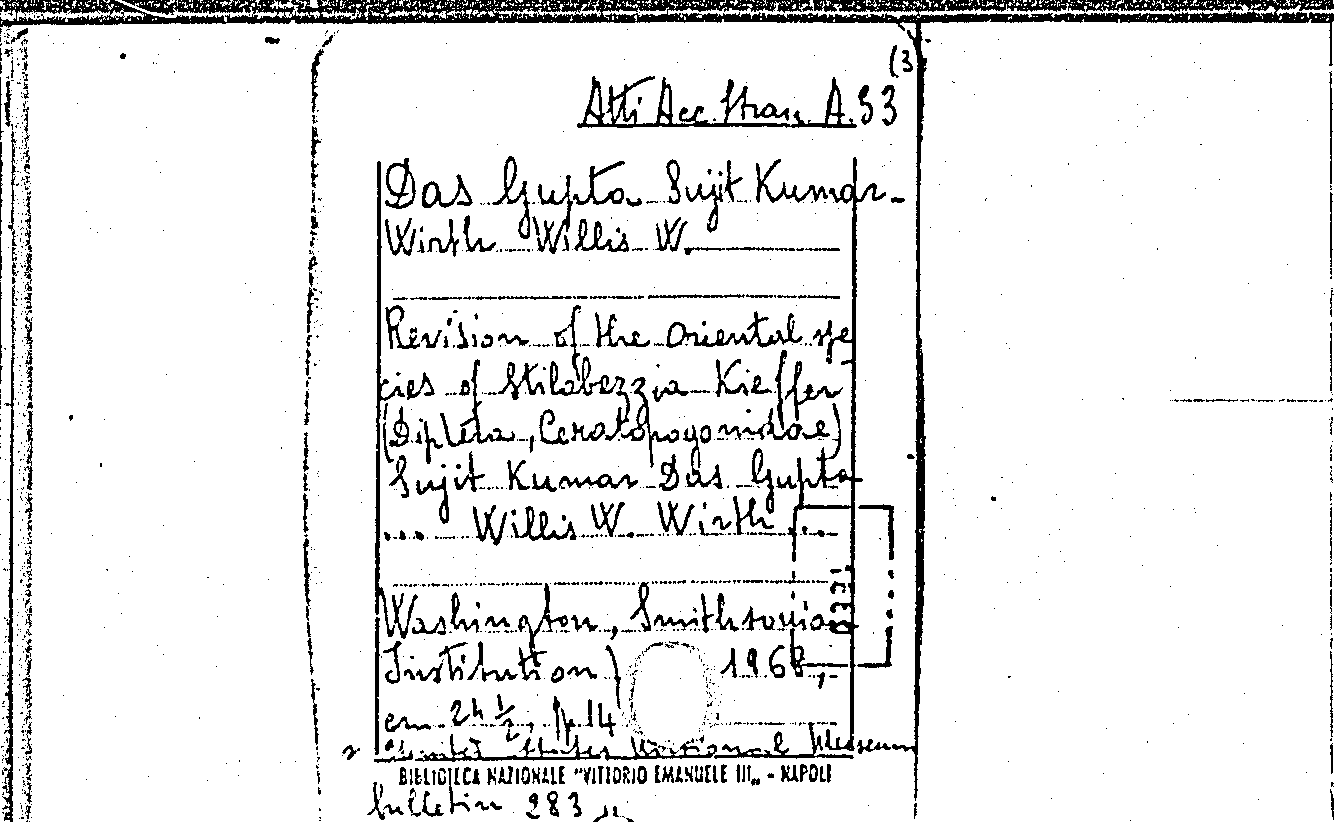 (3
Atti Acc. Stran. A. 53
Das Gupta Sujit Kumar -
Wirth Willis W.
Revision of the Oriental spe
cies of Stilobezzia Kieffer
(Diptera, Ceratopogonidae)
Sujit Kumar Das Gupta
... Willis W. Wirth ...
Washington, Smithsonian
Institution) 1968,
cm. 24 1/2, p. 14
United States National Museum
BIBLIOTECA NAZIONALE "VITTORIO EMANUELE III„ - NAPOLI
bulletin 283